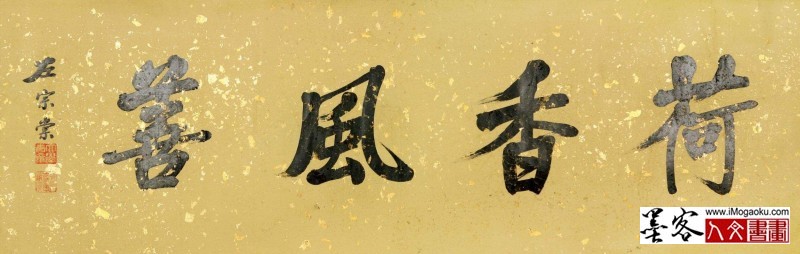 荷香風善
左宗棠
墨客
www.iMogaoku.com
人文書畫